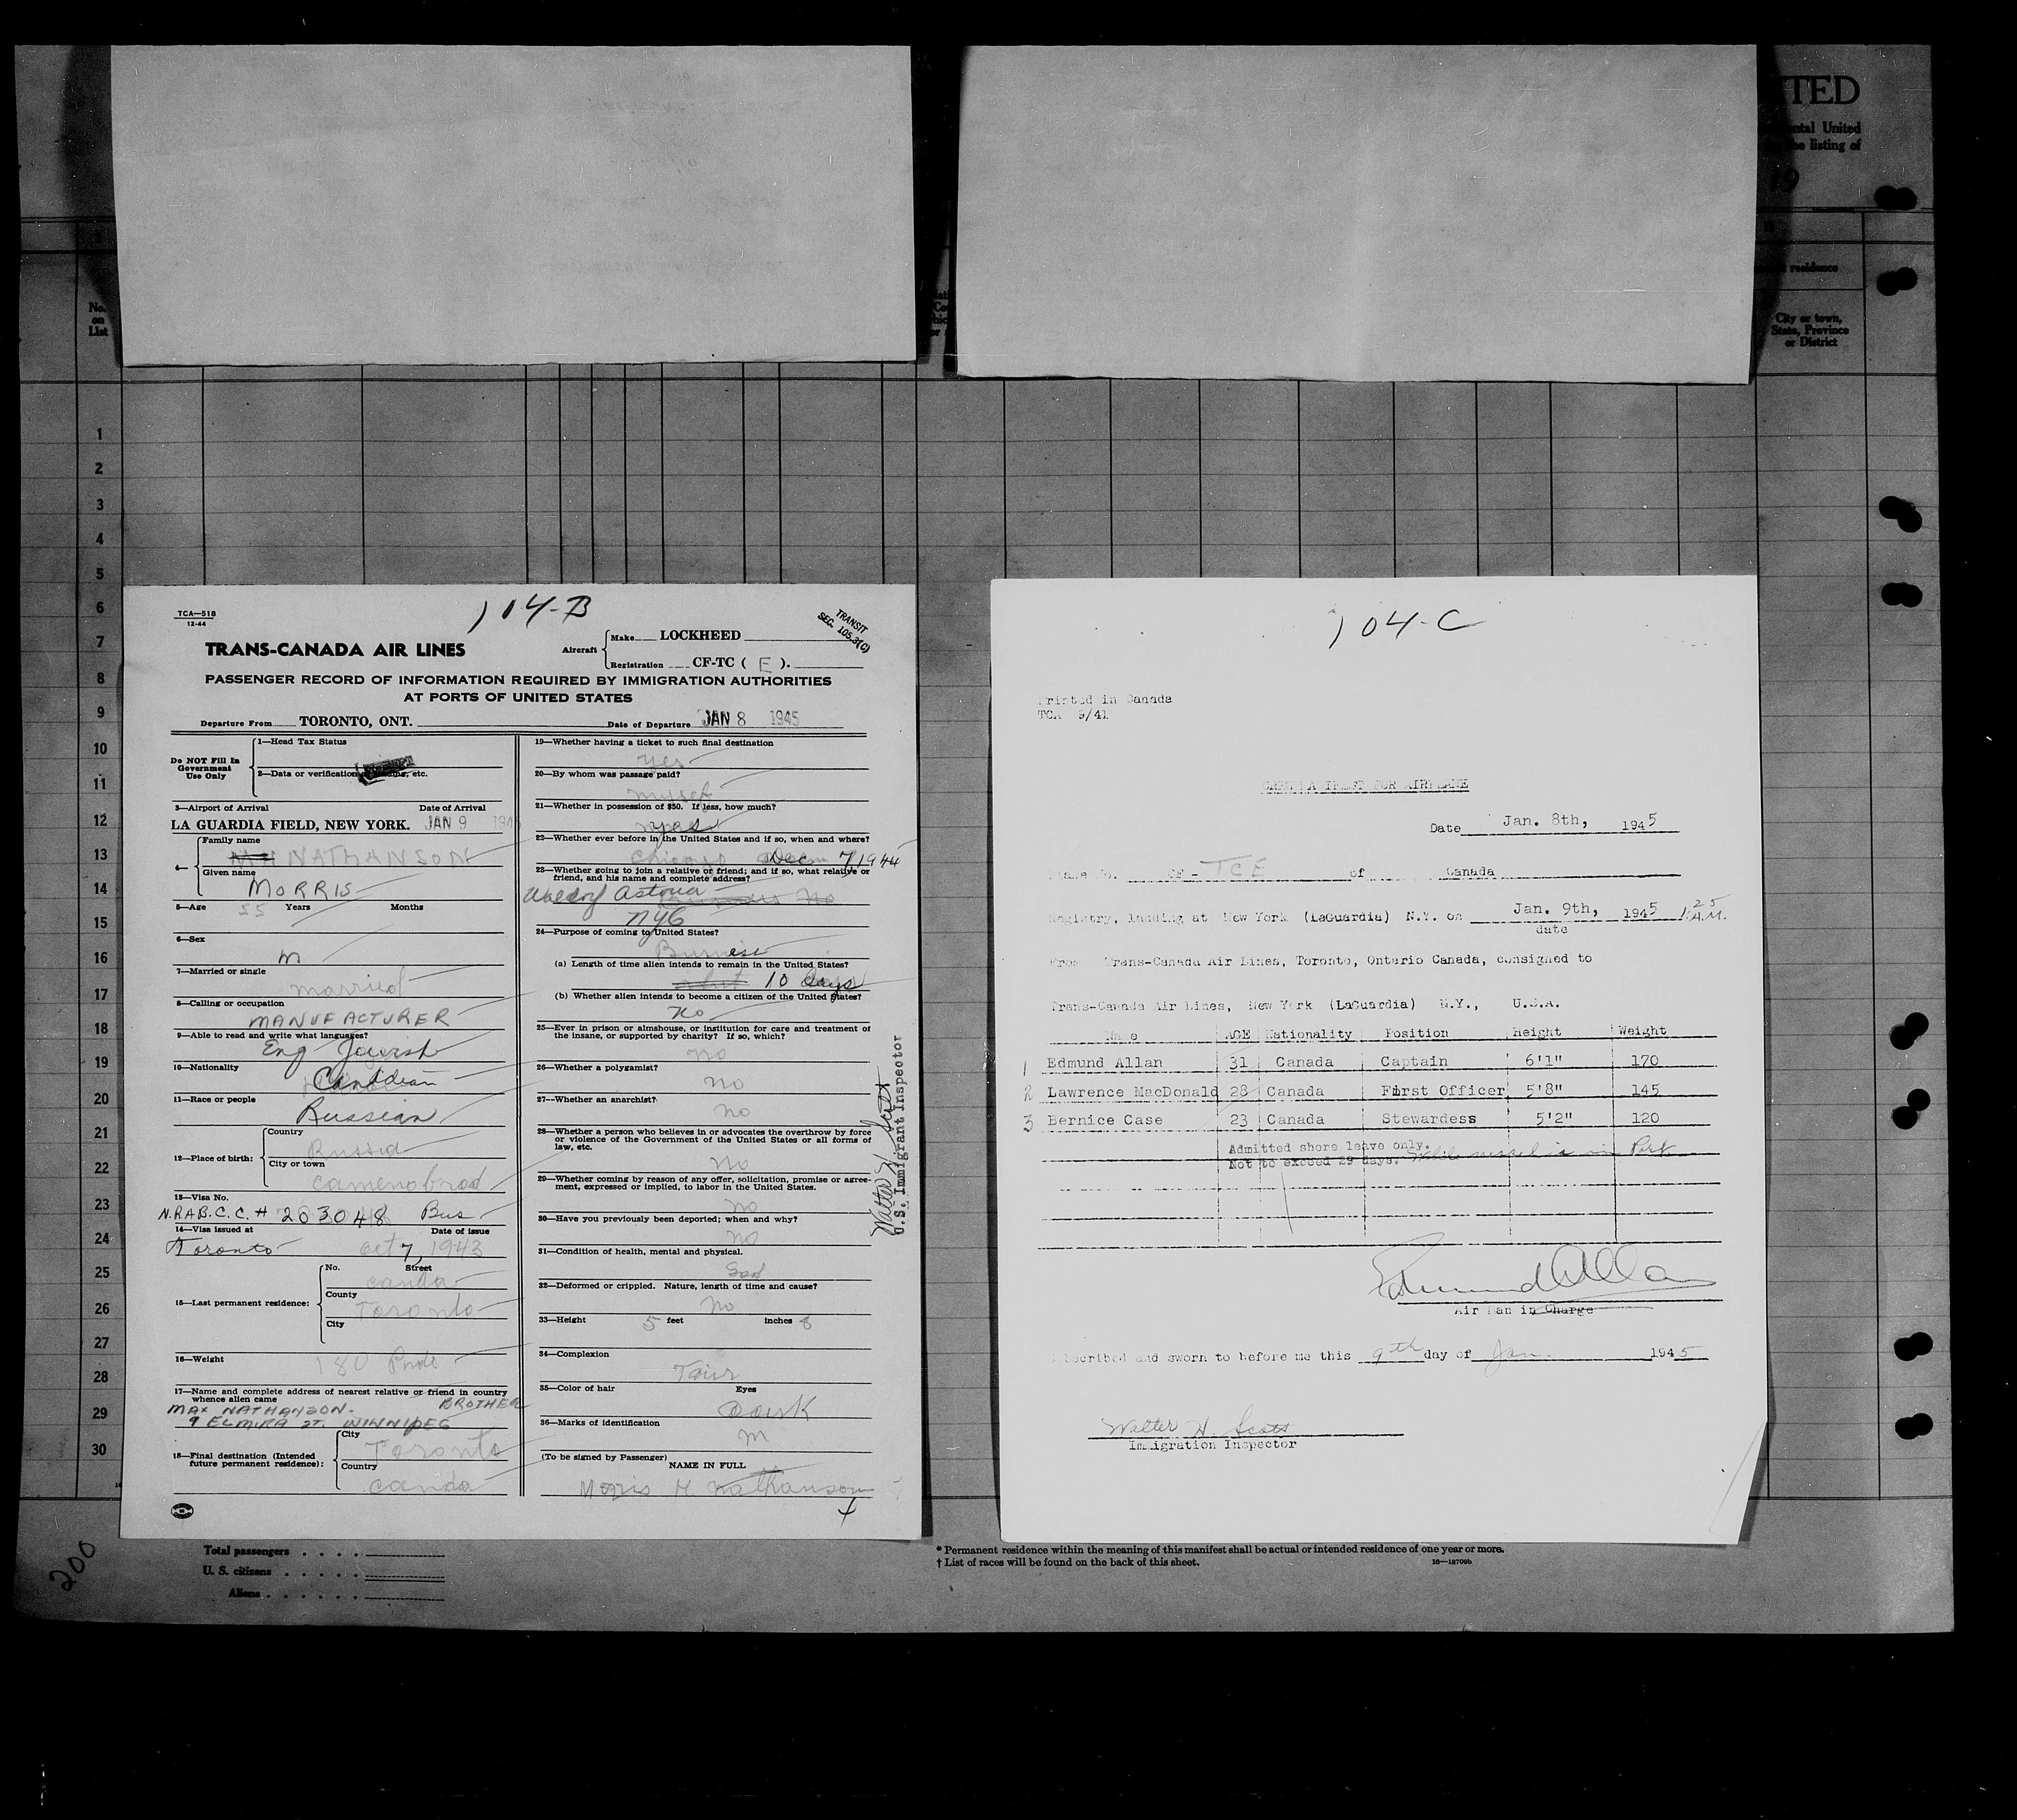 TED
ntal United
he listing of
residence
No.
on
List
City or town,
State, Province
or District
1
2
3
4
5
6
7
8
9
10
11
12
13
14
15
16
17
18
19
20
21
22
23
24
25
26
27
28
29
30
104-B
TCA—518
12-44
TRANSIT
SEC. 105.3(C)
TRANS-CANADA AIR LINES
Aircraft
Make LOCKHEED
Registration CF-TC ( E ).
PASSENGER RECORD OF INFORMATION REQUIRED BY IMMIGRATION AUTHORITIES
AT PORTS OF UNITED STATES
Departure From TORONTO, ONT. Date of Departure JAN 8 1945
Do NOT Fill In
Government
Use Only
1—Head Tax Status
2—Data or verification etc.
3—Airport of Arrival Date of Arrival
LA GUARDIA FIELD, NEW YORK. JAN 9 194
4— Family name
NATHANSON
Given name
MORRIS
5—Age 55 Years Months
6—Sex
M
7—Married or single
married
8—Calling or occupation
MANUFACTURER
9—Able to read and write what languages?
Eng Jewish
10—Nationality
Canadian
11—Race or people
Russian
12—Place of birth:
Country
Russia
City or town
camenobrod
13—Visa No.
N.R.A.B.C.C. # 263048 Bus
14—Visa issued at Date of issue
Toronto Oct 7, 1943
15—Last permanent residence:
No. Street
canda
County
Toronto
City
16—Weight 180 Pnds
17—Name and complete address of nearest relative or friend in country
whence alien came
MAX NATHANSON. BROTHER
9 ELMIRA ST. WINNIPEG
18—Final destination (Intended
future permanent residence):
City
Toronto
Country
canda
19—Whether having a ticket to such final destination
yes
20—By whom was passage paid?
myself
21—Whether in possession of $50. If less, how much?
yes
22—Whether ever before in the United States and if so, when and where?
Chicago Dec 7, 1944
23—Whether going to join a relative or friend; and if so, what relative or
friend, and his name and complete address?
Waldorf Astoria No
NYC
24—Purpose of coming to United States?
Business
(a) Length of time alien intends to remain in the United States?
10 days
(b) Whether alien intends to become a citizen of the United States?
No
25—Ever in prison or almshouse, or institution for care and treatment of
the insane, or supported by charity? If so, which?
no
26—Whether a polygamist?
no
27--Whether an anarchist?
no
28—Whether a person who believes in or advocates the overthrow by force
or violence of the Government of the United States or all forms of
law, etc.
no
29—Whether coming by reason of any offer, solicitation, promise or agree-
ment, expressed or implied, to labor in the United States.
no
30—Have you previously been deported; when and why?
no
31—Condition of health, mental and physical.
Good
32—Deformed or crippled. Nature, length of time and cause?
no
33—Height 5 feet inches 8
34—Complexion
Fair
35—Color of hair Eyes
Dark
36—Marks of identification
(To be signed by Passenger)
NAME IN FULL
Morris H Nathanson
Walter H Scott
U.S. Immigrant Inspector
104-C
Printed in Canada
TCA 5/41
CREW MANIFEST FOR AIRPLANE
Date Jan. 8th, 1945
Plane No. CF - TCE of Canada
Registry, landing at New York (LaGuardia) N.Y. on Jan. 9th, 1945 1:25 A.M.
date
From Trans-Canada Air Lines, Toronto, Ontario Canada, consigned to
Trans-Canada Air Lines, New York (LaGuardia) N.Y., U.S.A.
Name AGE Nationality Position Height Weight
1 Edmund Allan 31 Canada Captain 6'1" 170
2 Lawrence MacDonald 28 Canada First Officer 5'8" 145
3 Bernice Case 23 Canada Stewardess 5'2" 120
Admitted shore leave only.
Not to exceed 29 days. While vessel is in Port
Edmund Allan
Air Man in Charge
Subscribed and sworn to before me this 9th day of Jan. 1945
Walter H. Scott
Immigration Inspector
Total passengers . . . .
U. S. citizens . . . . .
Aliens . . . . . .
200
* Permanent residence within the meaning of this manifest shall be actual or intended residence of one year or more.
† List of races will be found on the back of this sheet. 16—18709b